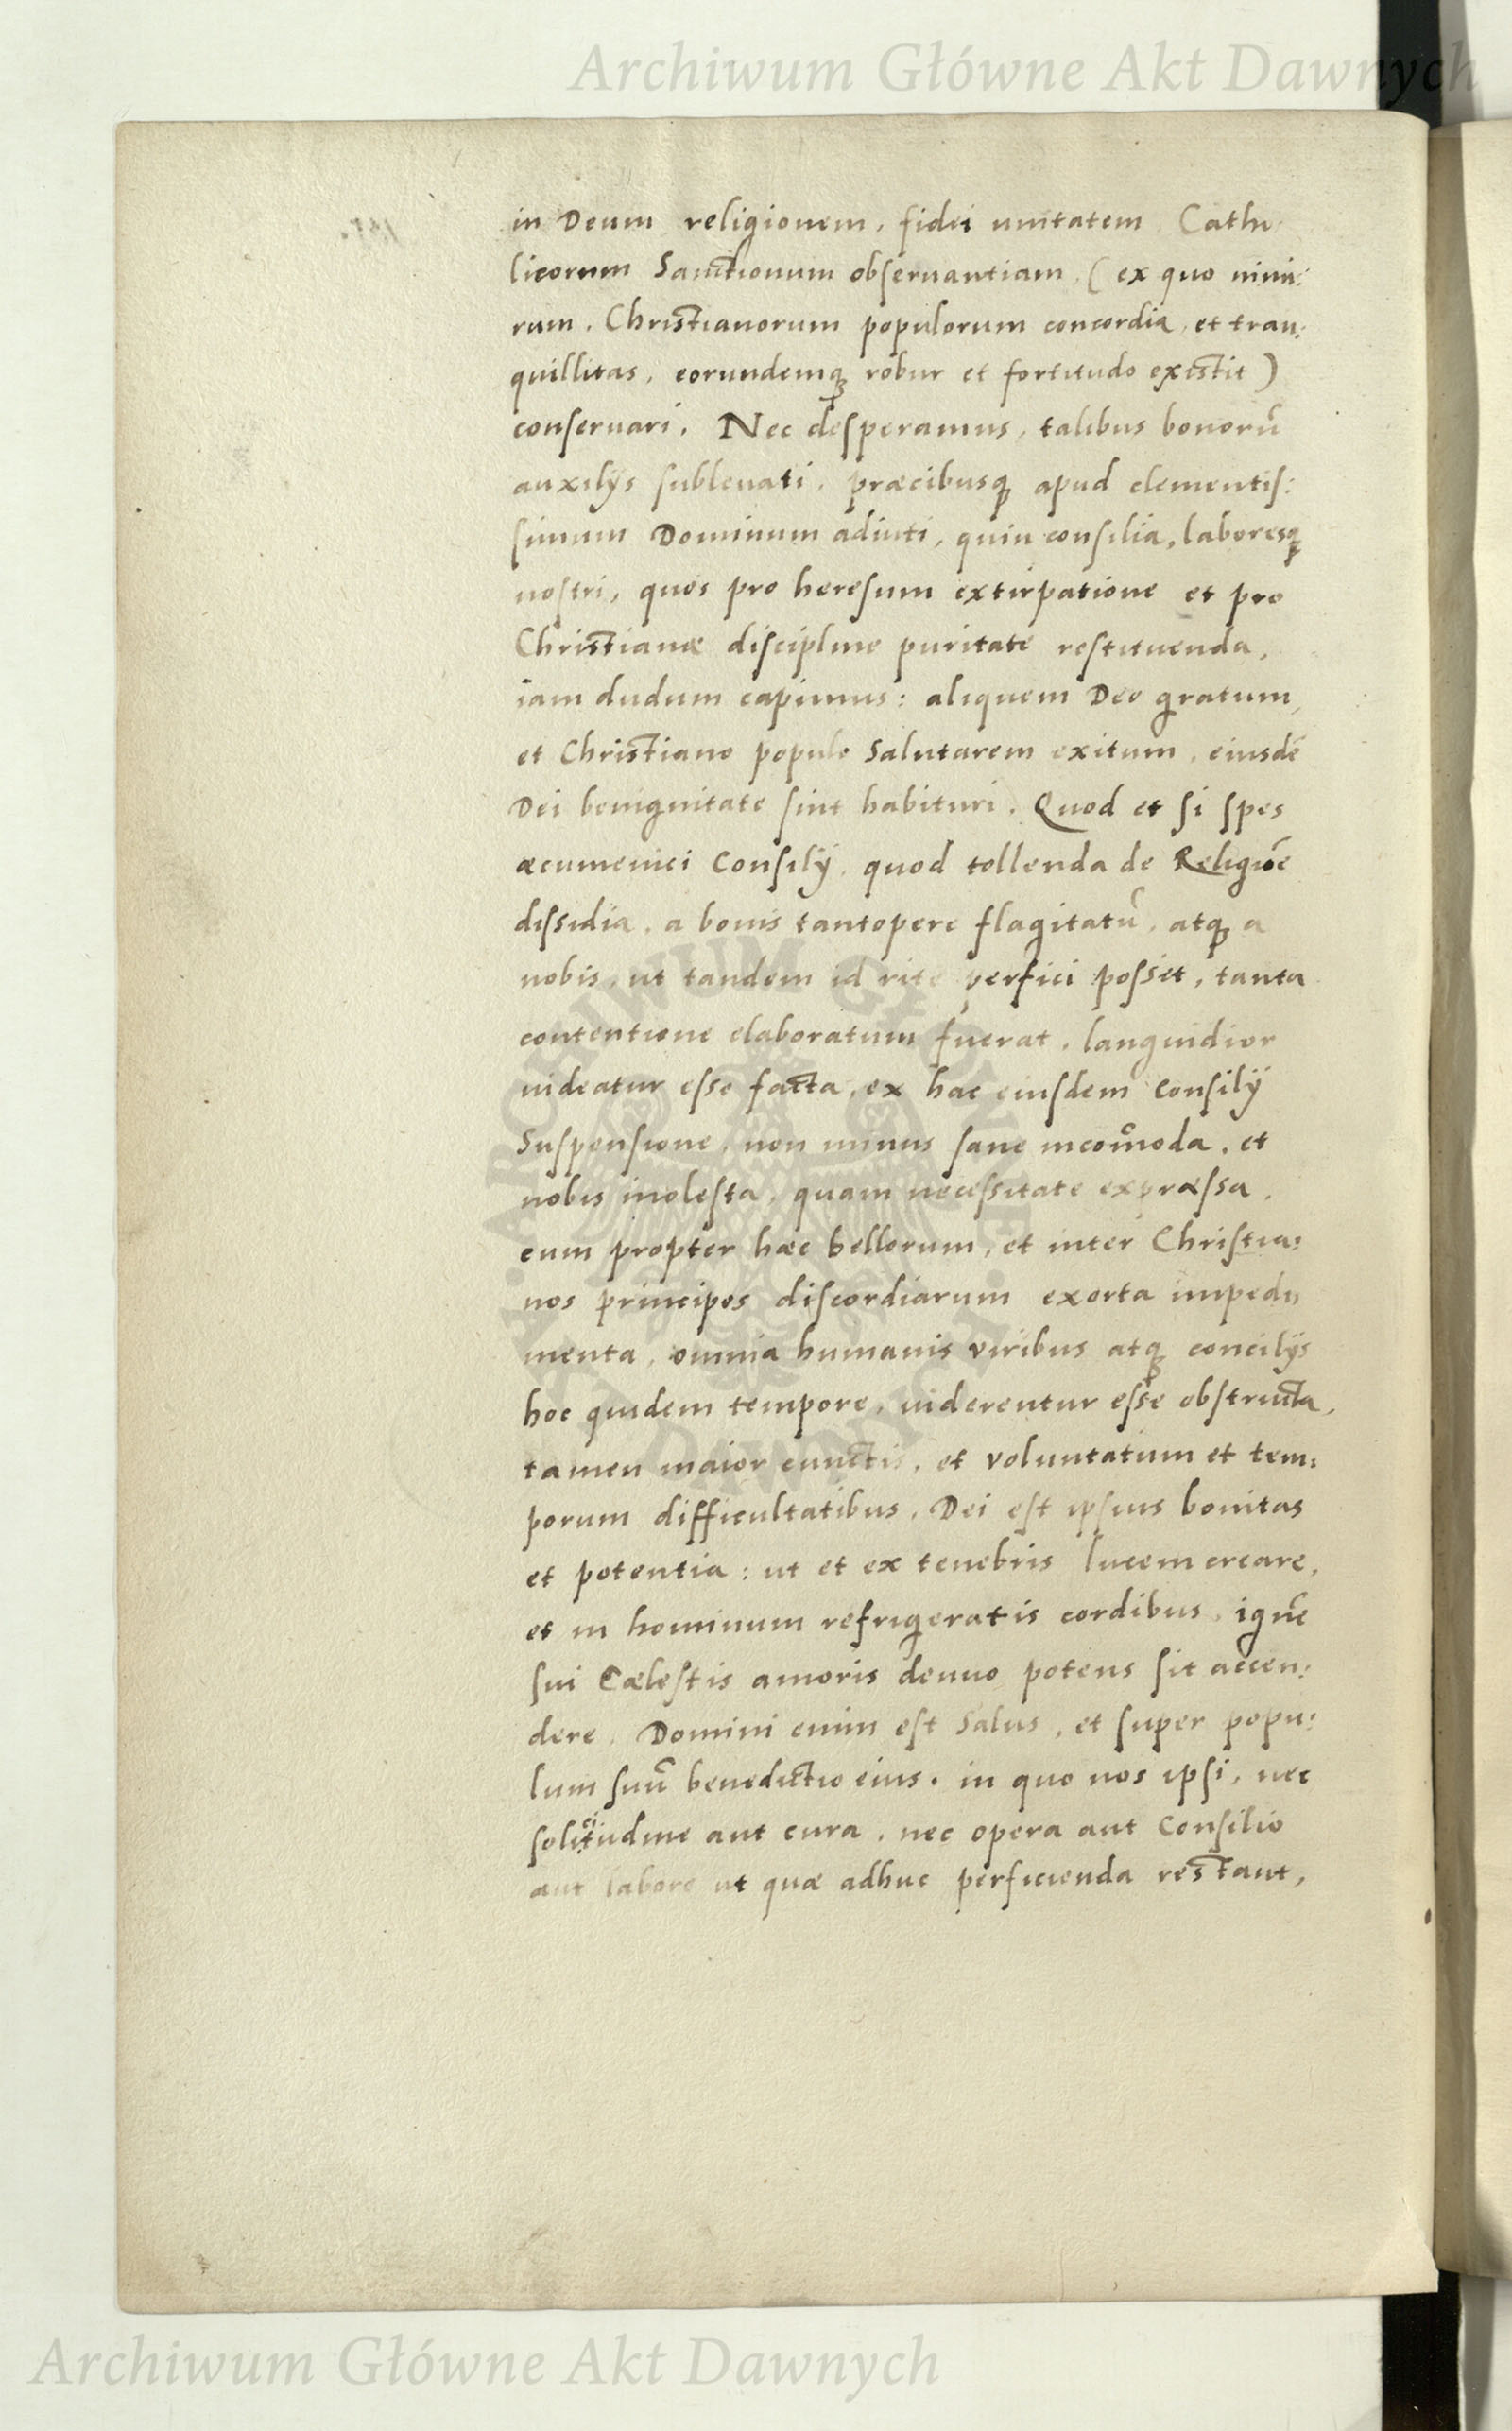 Archiwum Główne Akt Dawnych
in Deum religionem, fidei unitatem Catho-
licorum Sanctionum obseruantiam, (ex quo nimi:
rum, Christianorum populorum concordia, et tran:
quillitas, eorundemq̨ robur et fortitudo existit)
conseruari. Nec desperamus, talibus bonorũ
auxilijs subleuati, præcibusq̨ apud clementis:
simum Dominum adiuti, quin consilia, laboresq̨
nostri, quos pro heresum extirpatione et pro
Christianæ discipline puritate restituenda,
iam dudum capimus: aliquem Deo gratum,
et Christiano populo Salutarem exitum, eiusdẽ
Dei benignitate sint habituri. Quod et si spes
æcumenici Consilij, quod tollenda de Religiõe
dissidia, a bonis tantopere flagitatũ, atq̨ a
nobis, ut tandem id rite perfici posset, tanta
contentione elaboratum fuerat, languidior
uideatur esse facta, ex hac eiusdem Consilij
Suspensione, non minus sane incom̃oda, et
nobis molesta, quam necessitate expræssa,
cum propter hæc bellorum, et inter Christia:
nos principes discordiarum exorta impedi
menta, omnia humanis viribus atq̨ concilijs
hoc quidem tempore, uiderentur esse obstructa,
tamen maior cunctis, et voluntatum et tem:
porum difficultatibus, Dei est ipsius bonitas
et potentia: ut et ex tenebris lucem creare,
et in hominum refrigeratis cordibus, ignẽ
sui Cælestis amoris denuo potens sit accen:
dere. Domini enim est Salus, et super popu:
lum suũ benedictio eius. in quo nos ipsi, nec
solicitudine aut cura, nec opera aut Consilio
aut labore ut quæ adhuc perficienda restant,
ARCHIWUM GŁÓWNE AKT DAWNYCH
Archiwum Główne Akt Dawnych